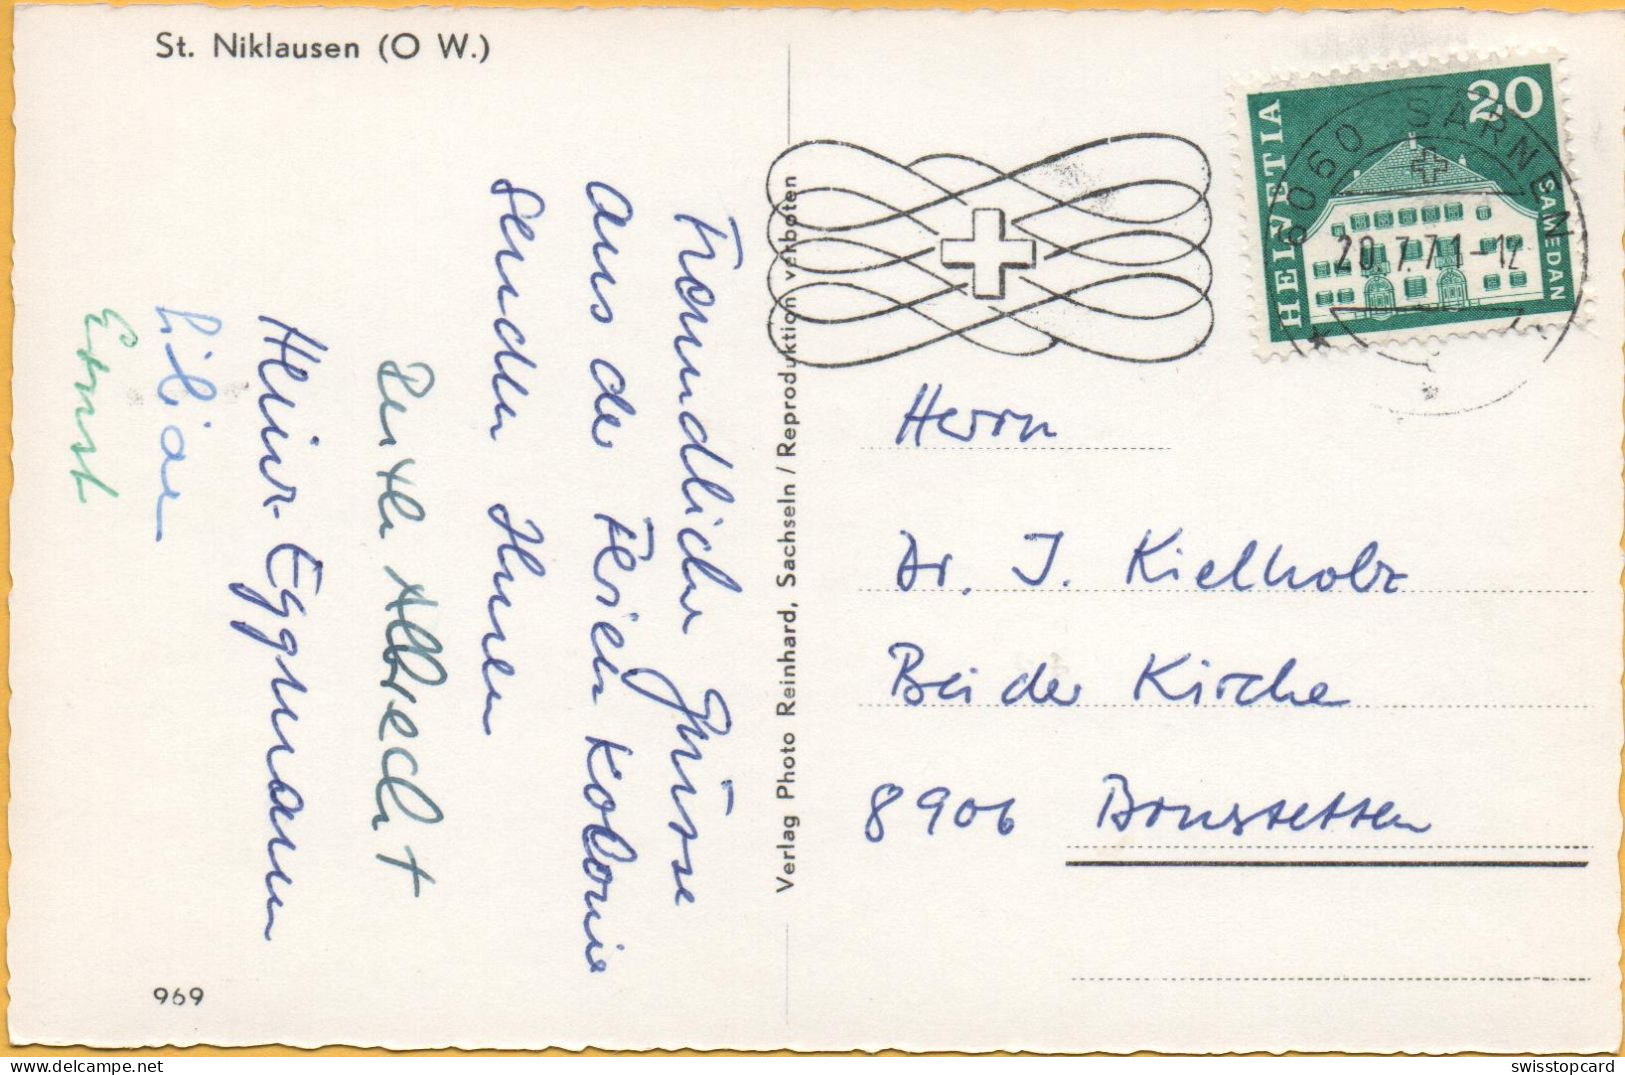 St. Niklausen (O W.)
Freundliche Grüsse
aus der Ferien kolonie
senden Ihnen
Ruthli Albrecht
Heinr. Eggmann
Lilian
Ernst
969
Verlag Photo Reinhard, Sachseln / Reproduktion verboten
HELVETIA
20
SAMEDAN
6060 SARNEN
20.7.71-12
Herrn
Dr. J. Kielholz
Bei der Kirche
8906 Bonstetten
swisstopcard